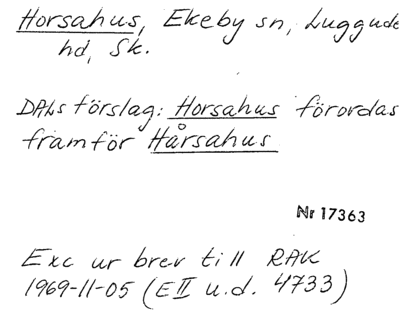 Horsahus, Ekeby sn, Luggude
hd, Sk.
DALs förslag: Horsahus förordas
framför Hårsahus
Nr 17363
Exc ur brev till RAK
1969-11-05 (E II u.d. 4733)